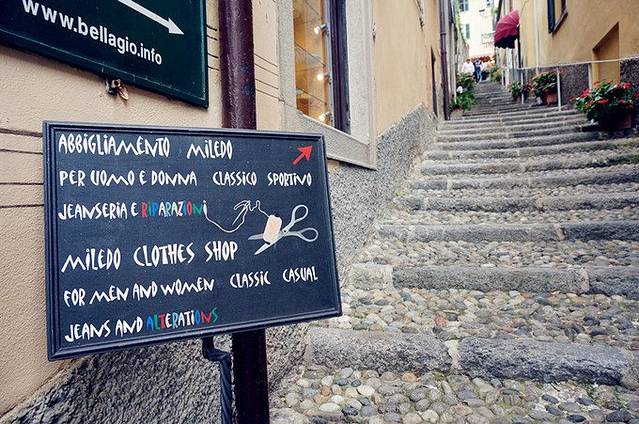 www.bellagio.info
ABBIGLIAMENTO MILEDO
PER UOMO E DONNA CLASSICO SPORTINO
JEANSERIA E RIPARAZIONI
MILEDO CLOTHES SHOP
FOR MEN AND WOMEN CLASSIC CASUAL
JEANS AND ALTERATIONS